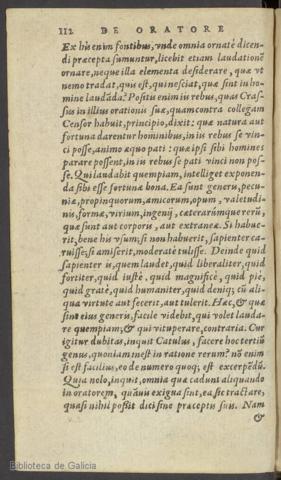 112 DE ORATORE
Ex his enim fontibus, vnde omnia ornatè dicen-
di præcepta sumuntur, licebit etiam laudationē
ornare, neque illa elementa desiderare, quæ vt
nemo tradat, quis est, qui nesciat, quæ sint in ho-
mine laudāda? Positis enim iis rebus, quas Cras-
sus in illius orationis suæ, quam contra collegam
Censor habuit, principio, dixit: quæ natura aut
fortuna darentur hominibus, in iis rebus se vin-
ci posse, animo æquo pati: quæ ipsi sibi homines
parare possent, in iis rebus se pati vinci non pos-
se. Qui laudabit quempiam, intelliget exponen-
da sibi esse fortunæ bona. Ea sunt generis, pecu-
niæ, propinquorum, amicorum, opum, valetudi-
nis, formæ, virium, ingenij, cæterarūmque rerū,
quæ sunt aut corporis, aut extraneæ. Si habue-
rit, bene his vsum; si non habuerit, sapienter ca-
ruisse; si amiserit, moderatè tulisse. Deinde quid
sapienter is, quem laudet, quid liberaliter, quid
fortiter, quid iustè, quid magnificè, quid piè,
quid gratè, quid humaniter, quid deniq; cū ali-
qua virtute aut fecerit, aut tulerit. Hæc, & quæ
sint eius generis, facile videbit, qui volet lauda-
re quempiam; & qui vituperare, contraria. Cur
igitur dubitas, inquit Catulus, facere hoc tertiū
genus, quoniam inest in ratione rerum? nō enim
si est facilius, eo de numero quoq; est excerpēdū.
Quia nolo, inquit, omnia quæ cadunt aliquando
in oratorem, quāuis exigua sint, ea sic tractare,
quasi nihil possit dici sine præceptis suis. Nam
&
Biblioteca de Galicia